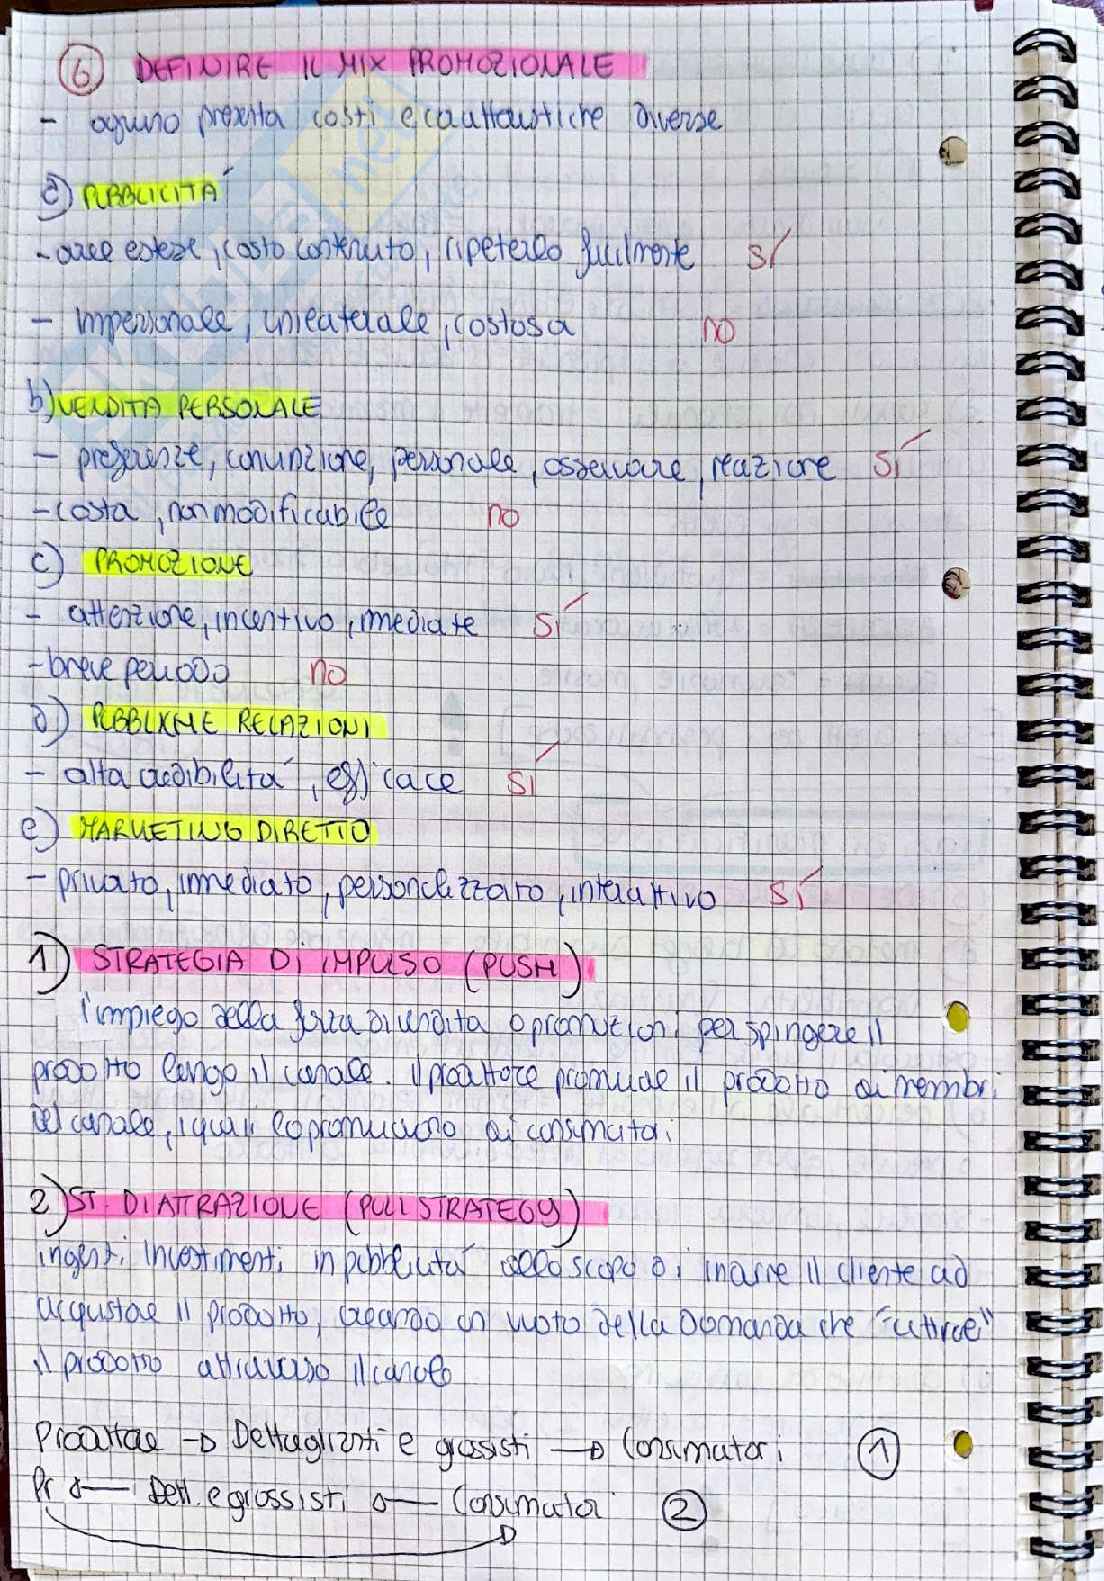 6 DEFINIRE IL MIX PROMOZIONALE
- ognuno presenta costi e caratteristiche diverse
a) PUBBLICITÀ
- aree estese, costo contenuto, ripeterlo facilmente SÍ
- impersonale, unilaterale, costosa no
b) VENDITA PERSONALE
- preferenze, convinzione, personale, osservare, reazione SÍ
- costa, non modificabile no
c) PROMOZIONE
- attenzione, incentivo, immediate SÍ
- breve periodo no
d) PUBBLICHE RELAZIONI
- alta credibilità, efficace SÍ
e) MARKETING DIRETTO
- privato, immediato, personalizzato, interattivo SÍ
1) STRATEGIA DI IMPULSO (PUSH)
l'impiego della forza di vendita o promozioni per spingere il
prodotto lungo il canale. Il produttore promuove il prodotto ai membri
del canale, i quali lo promuovono ai consumatori
2) ST. DI ATTRAZIONE (PULL STRATEGY)
ingenti investimenti in pubblicità allo scopo di indurre il cliente ad
acquistare il prodotto, creando un vuoto della domanda che "attira"
il prodotto attraverso il canale
Produttore → Dettaglianti e grossisti → Consumatori 1
Pr ← Dett. e grossisti ← Consumatori 2